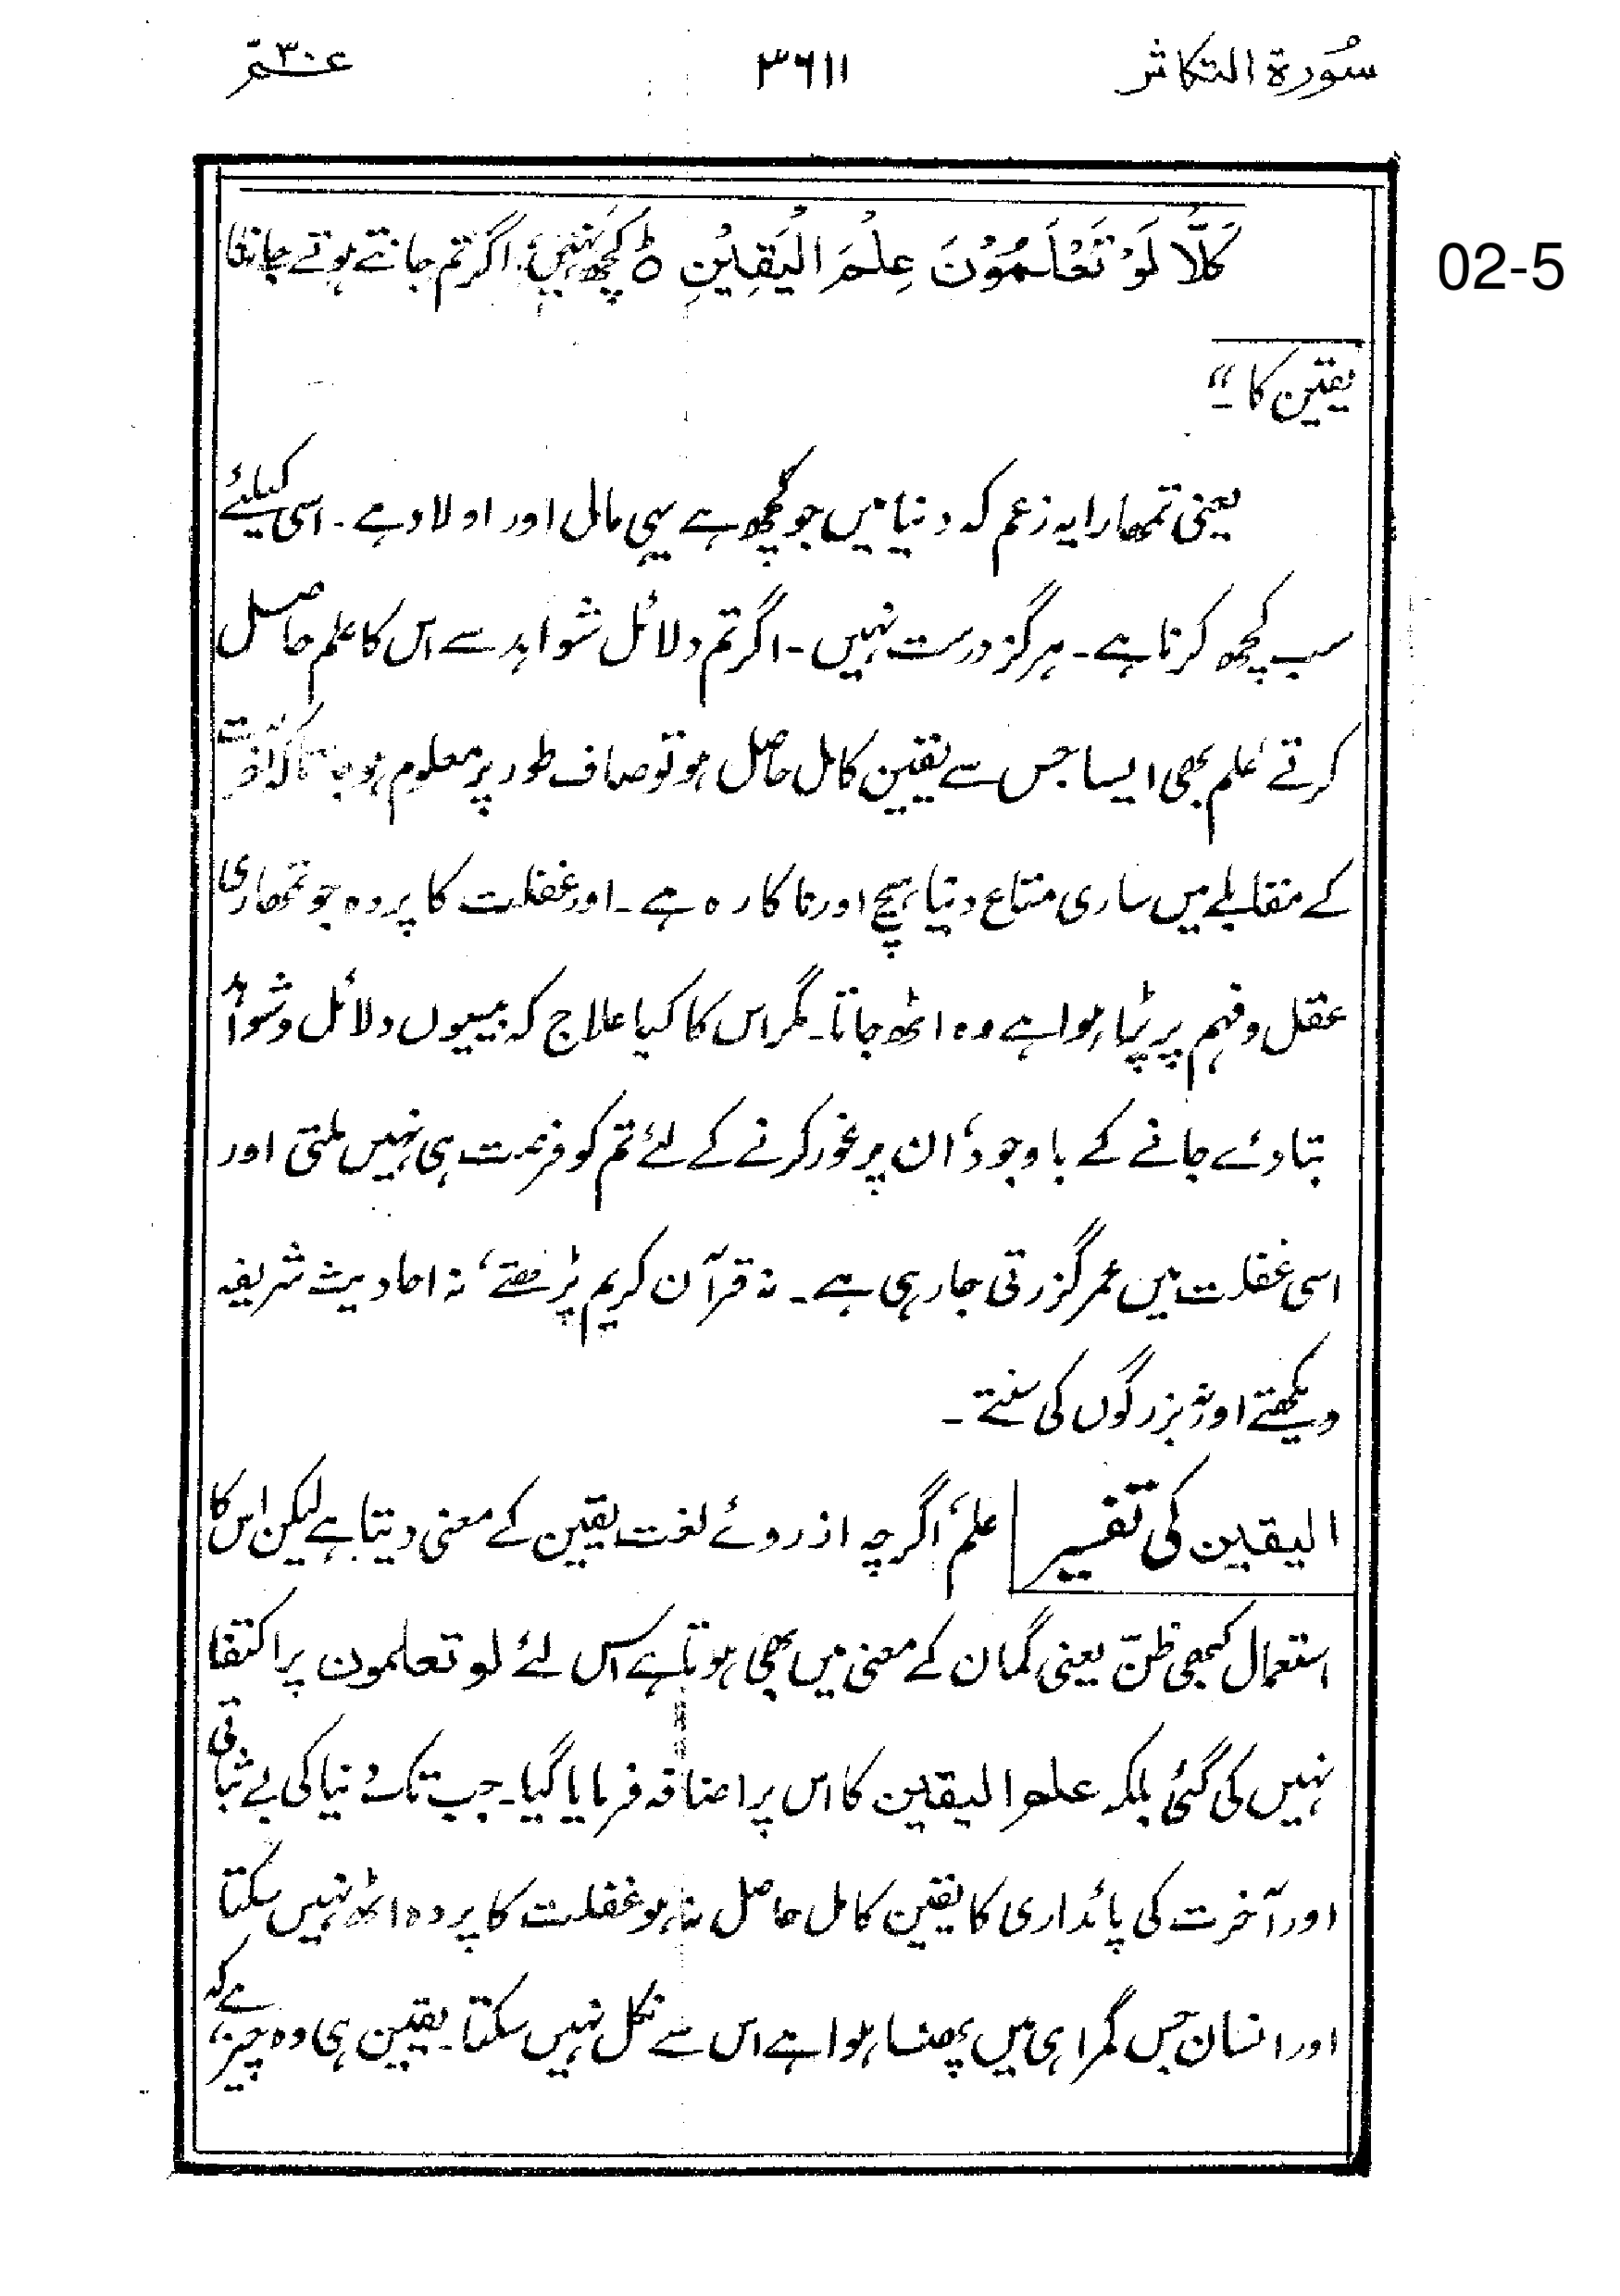 سُورة التکاثر ۳۶۱۱ عمّ ۳۰
02-5
كَلَّا لَوْ تَعْلَمُوْنَ عِلْمَ الْيَقِيْنِ ؕ کچھ نہیں، اگر تم جانتے ہوتے جاننا
یقین کا“۔
یعنی تمھارا یہ زعم کہ دنیا میں جو کچھ ہے یہی مال اور اولاد ہے۔ اسی کیلئے
سب کچھ کرنا ہے۔ ہرگز درست نہیں۔ اگر تم دلائل شواہد سے اس کا علم حاصل
کرتے‘ علم بھی ایسا جس سے یقین کامل حاصل ہو تو صاف طور پر معلوم ہو جاتا کہ آخرت
کے مقابلے میں ساری متاع دنیا ہیچ اور ناکارہ ہے۔ اور غفلت کا پردہ جو تمھاری
عقل و فہم پر پڑا ہوا ہے وہ اٹھ جاتا۔ مگر اس کا کیا علاج کہ بیسیوں دلائل و شواہد
بتا دئے جانے کے باوجود‘ ان پر غور کرنے کے لئے تم کو فرصت ہی نہیں ملتی اور
اسی غفلت میں عمر گزرتی جا رہی ہے۔ نہ قرآن کریم پڑھتے‘ نہ احادیث شریفہ
دیکھتے اور نہ بزرگوں کی سنتے۔
الیقین کی تفسیر علم‘ اگرچہ از روئے لغت یقین کے معنی دیتا ہے لیکن اس کا
استعمال کبھی ظنّ یعنی گمان کے معنی میں بھی ہوتا ہے اس لئے لو تعلمون پر اکتفا
نہیں کی گئی بلکہ علم الیقین کا اس پر اضافہ فرمایا گیا۔ جب تک دنیا کی بے ثباتی
اور آخرت کی پائداری کا یقین کامل حاصل نہ ہو غفلت کا پردہ اٹھ نہیں سکتا
اور انسان جس گمراہی میں پھنسا ہوا ہے اس سے نکل نہیں سکتا۔ یقین ہی وہ چیز ہے کہ